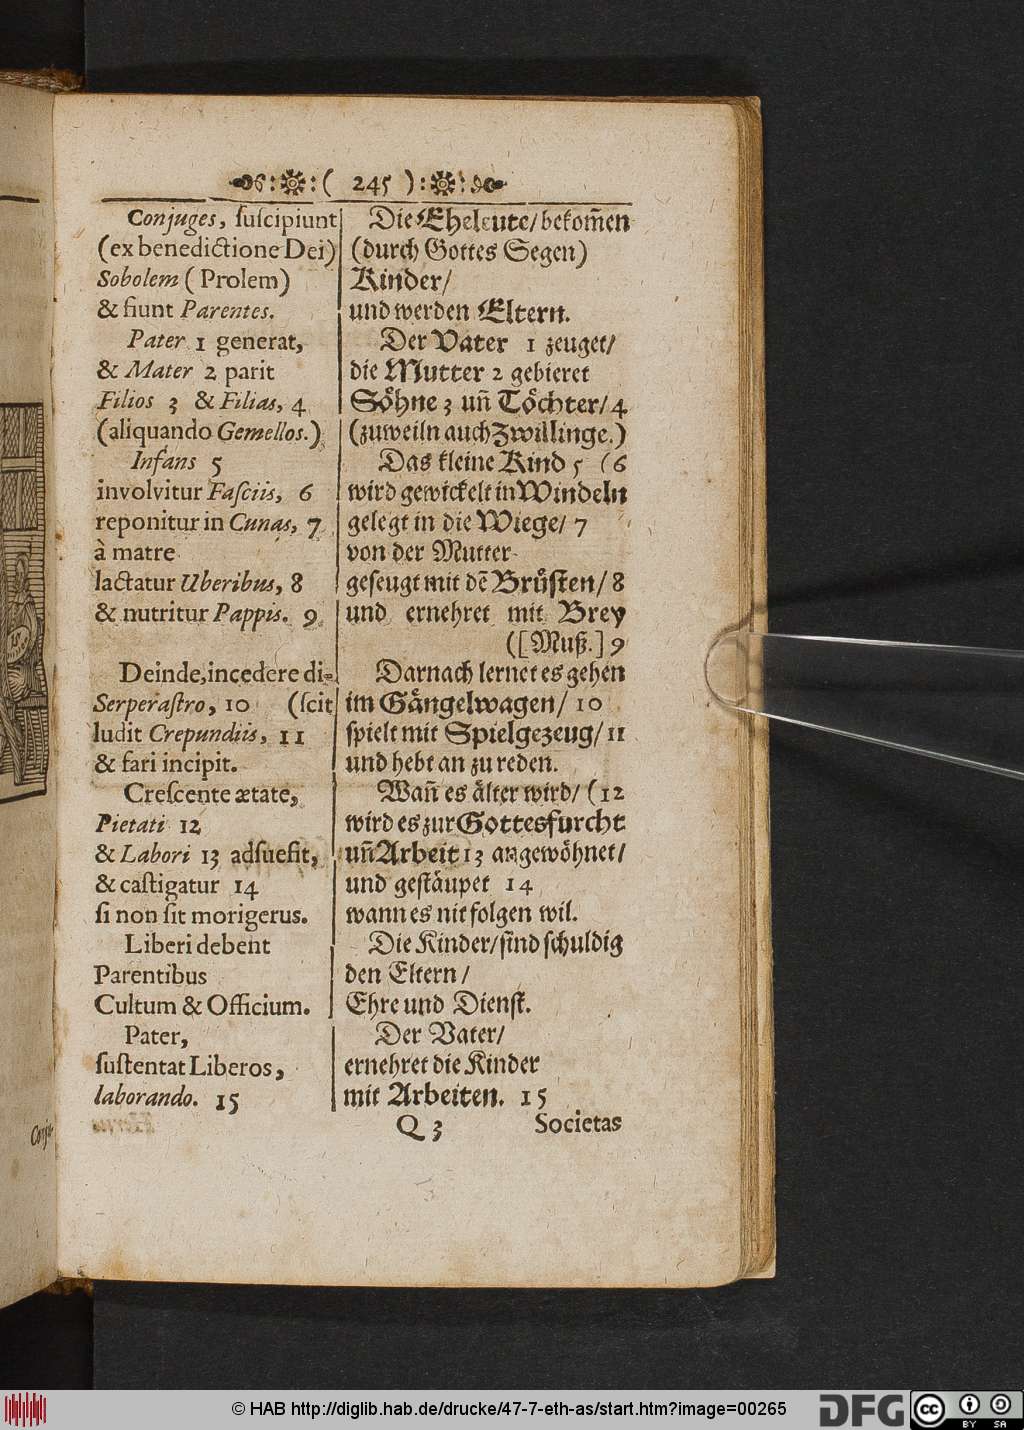 ( 245 )
Conjuges, ſuſcipiunt
(ex benedictione Dei)
Sobolem ( Prolem)
& fiunt Parentes.
Pater 1 generat,
& Mater 2 parit
Filios 3 & Filias, 4
(aliquando Gemellos.)
Infans 5
involvitur Faſciis, 6
reponitur in Cunas, 7
à matre
lactatur Uberibus, 8
& nutritur Pappis. 9
Deinde, incedere di-
Serperaſtro, 10 (ſcit
ludit Crepundiis, 11
& fari incipit.
Creſcente ætate,
Pietati 12
& Labori 13 adſueſit,
& caſtigatur 14
ſi non ſit morigerus.
Liberi debent
Parentibus
Cultum & Officium.
Pater,
ſuſtentat Liberos,
laborando. 15
Die Eheleute/ bekom̃en
(durch Gottes Segen)
Kinder/
und werden Eltern.
Der Vater 1 zeuget/
die Mutter 2 gebieret
Söhne 3 uñ Töchter/ 4
(zuweiln auch Zwillinge.)
Das kleine Kind 5 (6
wird gewickelt in Windeln
gelegt in die Wiege/ 7
von der Mutter
geſeugt mit dẽ Brüſten/ 8
und ernehret mit Brey
([Muß.] 9
Darnach lernet es gehen
im Gängelwagen/ 10
ſpielt mit Spielgezeug/ 11
und hebt an zu reden.
Wañ es älter wird/ (12
wird es zur Gottesfurcht
uñ Arbeit 13 angewöhnet/
und geſtäupet 14
wann es nit folgen wil.
Die Kinder/ ſind ſchuldig
den Eltern/
Ehre und Dienſt.
Der Vater/
ernehret die Kinder
mit Arbeiten. 15
Q 3 Societas
© HAB http://diglib.hab.de/drucke/47-7-eth-as/start.htm?image=00265
DFG
cc BY SA